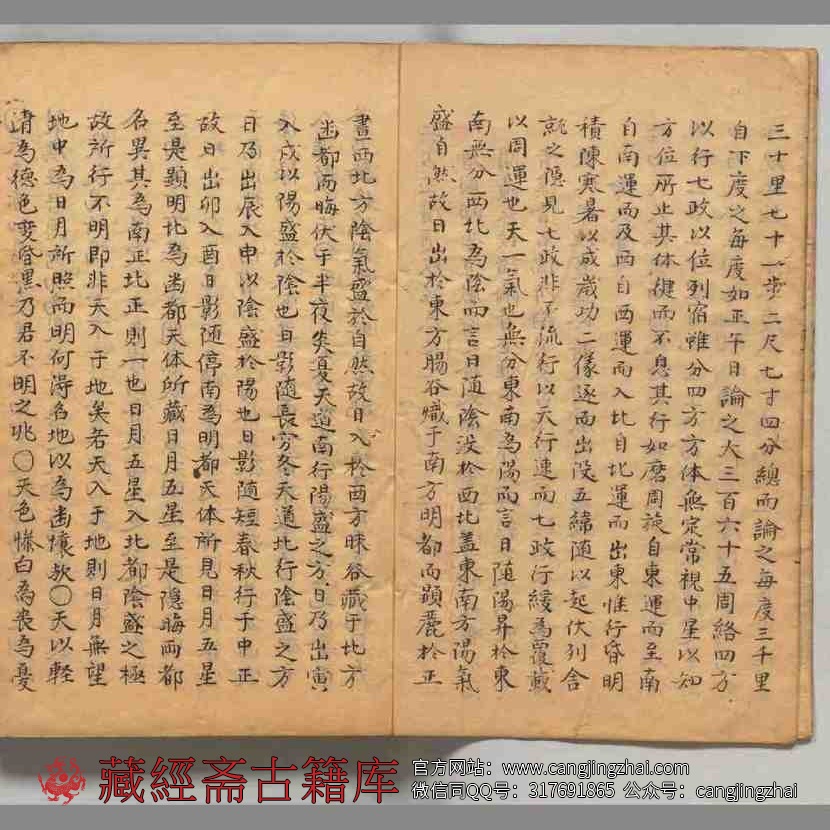 三十里七十一步二尺七寸四分總而論之每度三千里
自下度之每度如正午日論之大三百六十五周絡四方
以行七政以位列宿雖分四方方体無定常視中星以知
方位所止其体健而不息其行如磨周旋自東運而至南
自南運而及西自西運而入北自北運而出東惟行昏明
積陳寒暑以成歲功二儀逐而出沒五緯随以起伏列舍
就之隠見七政非不流行以天行連而七政行緩為覆載
以周運也天一氣也無分東南為陽而言日随陽昇於東
南無分西北為陰而言日随陰没於西北蓋東南方陽氣
盛自然故日出於東方暘谷熾于南方明都而顕麗於正
晝西北方陰氣盛於自然故日入於酉方昧谷藏于北方
幽都而晦伏于半夜矣夏天道南行陽盛之方日乃出寅
入戌以陽盛於陰也日影隨長穷冬天道北行陰盛之方
日乃出辰入申以陰盛於陽也日影随短春秋行于中正
故日出卯入酉日影随停南為明都天体所見日月五星
至是顕明北為幽都天体所藏日月五星至是隠晦两都
名異其為南正北正則一也日月五星入北都陰盛之極
故所行不明即非天入于地矣若天入于地則日月無望
地中為日月所照而明何得名地以為幽懷欤〇天以輕
清為德色变昏黒乃君不明之兆〇天色慘白為丧為憂
藏經斋古籍库
官方网站：www.cangjingzhai.com
微信同QQ号：317691865 公众号：cangjingzhai